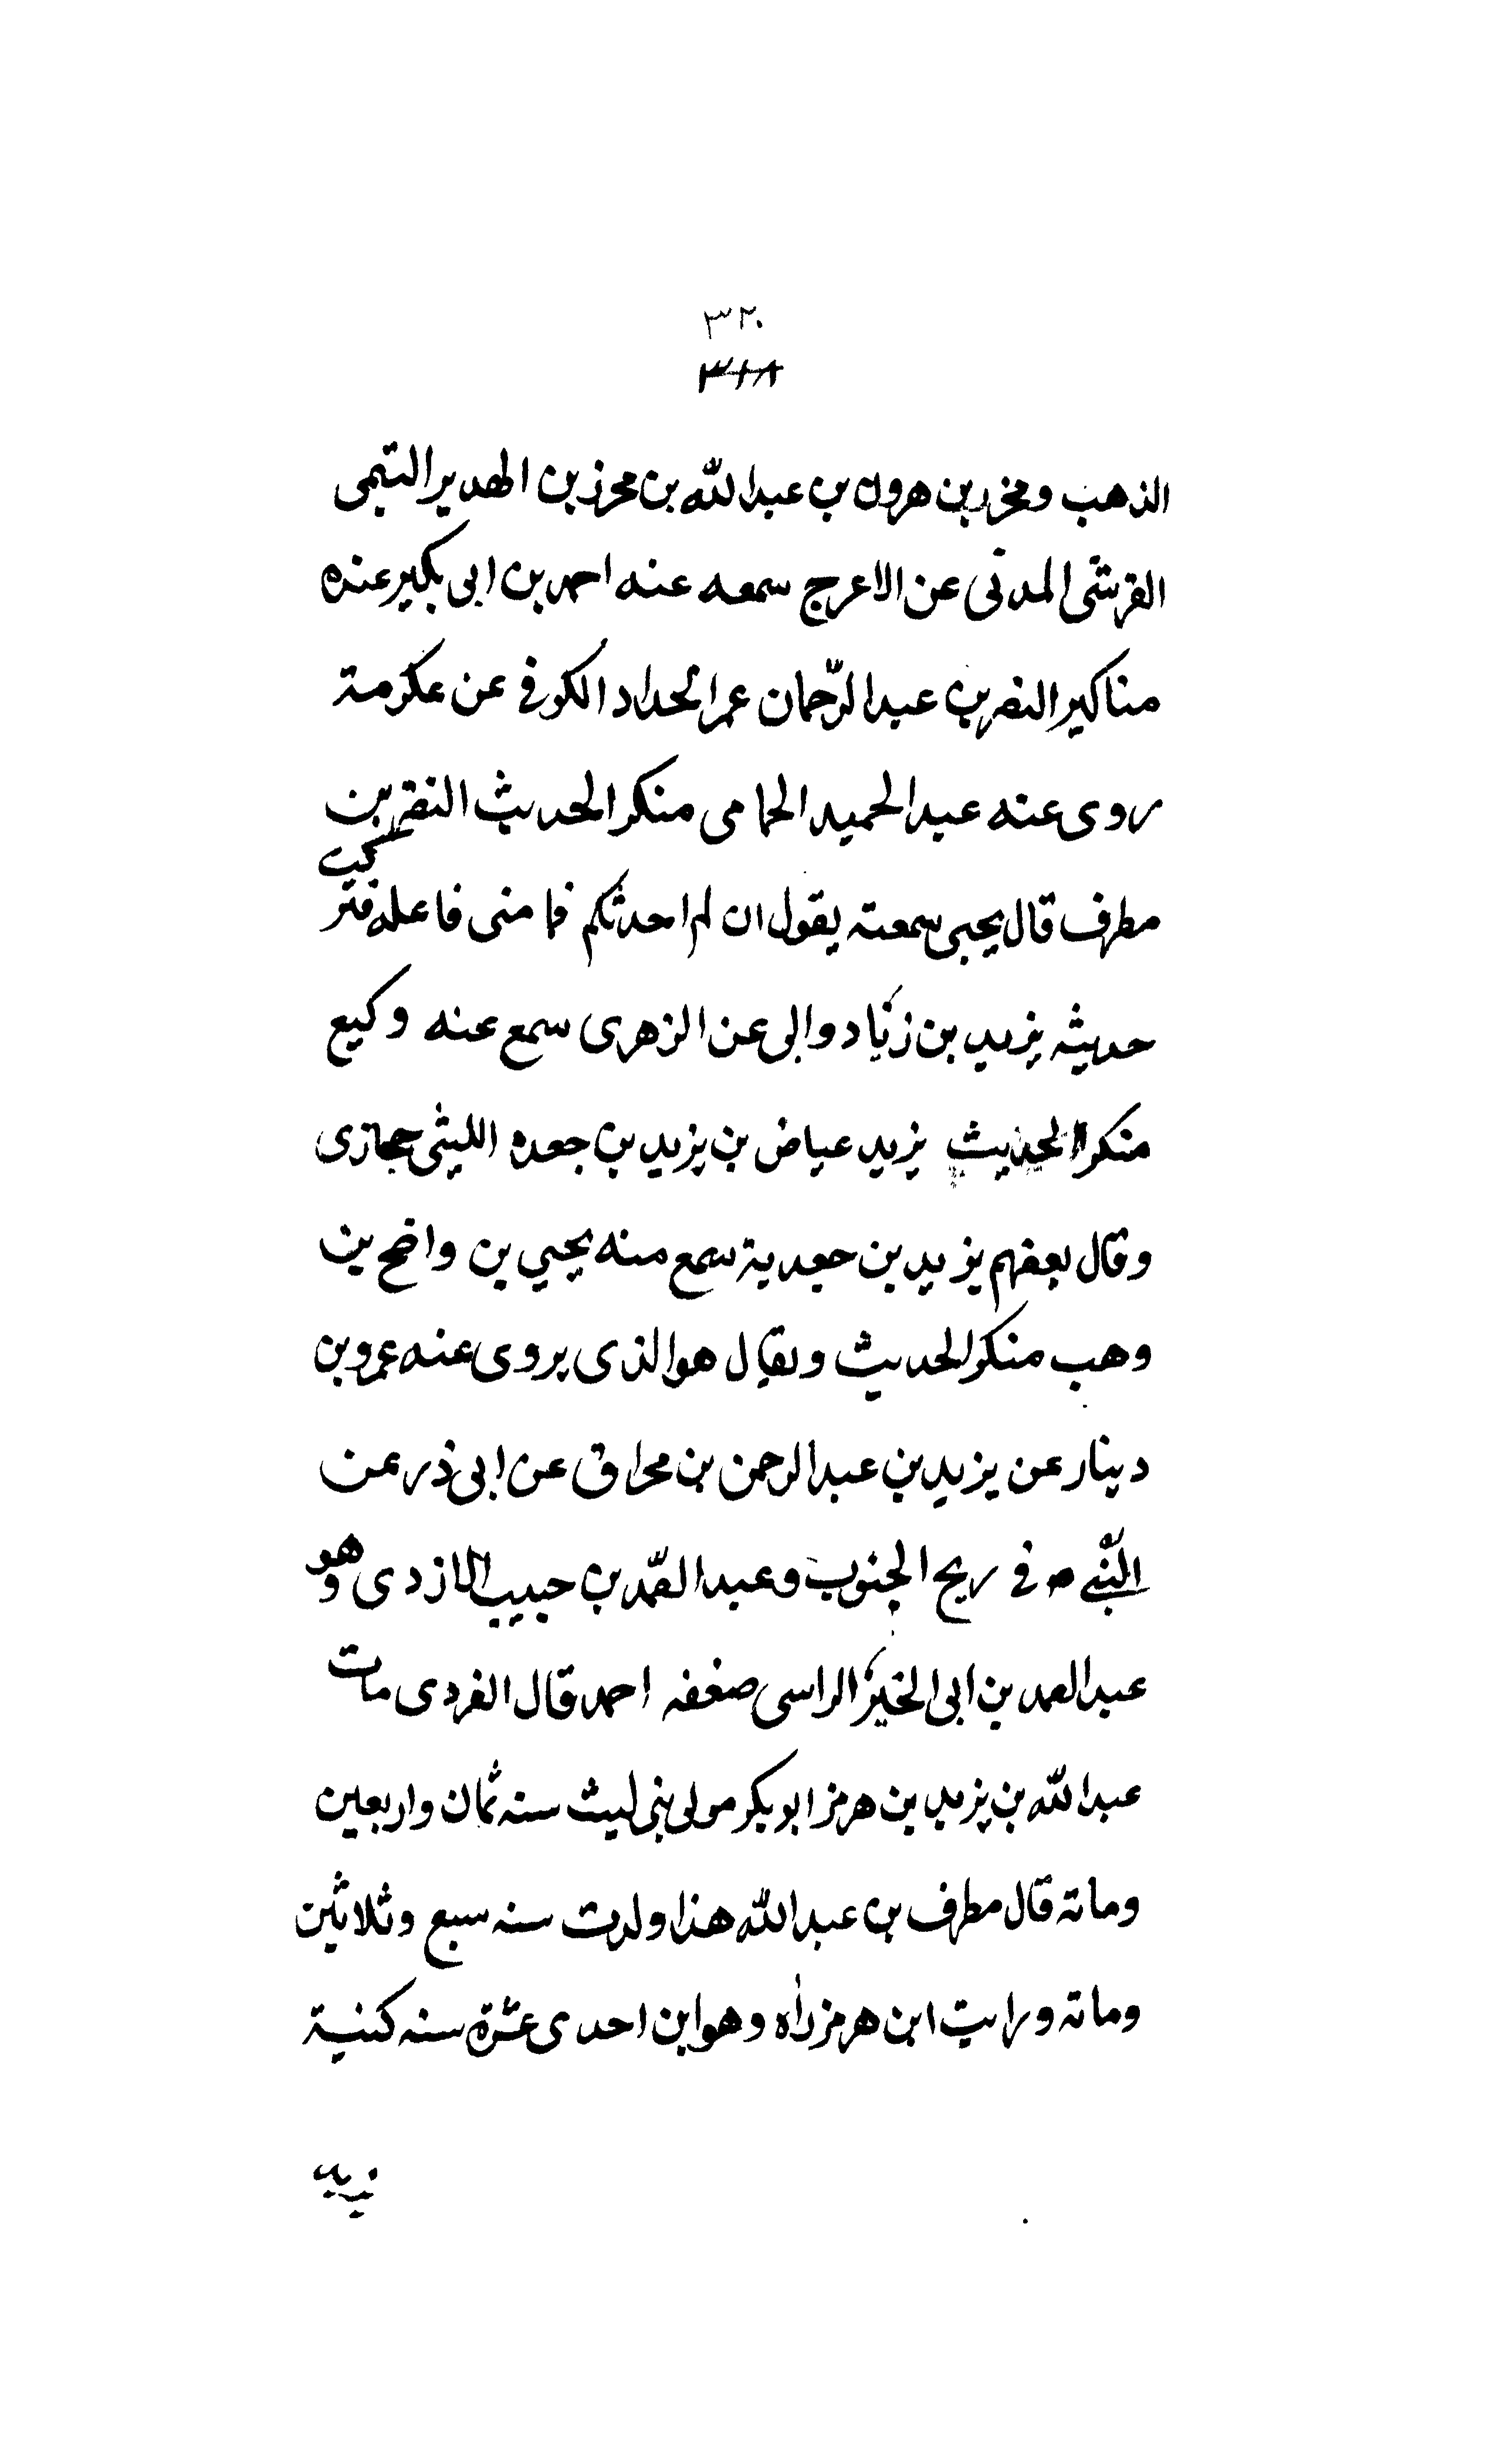 ٣٢٠
٣١٨
الذهب ومحرر بن هرون بن عبد الله بن محرز بن الهدير التيمى
القرشى المدنى عن الاعرج سمعه عنه احمد بن ابى بكير عنده
مناكير النضر بن عبد الرّحمان عمر الحداد الكوفى عن عكرمة
روى عنه عبد الحميد الحمامى منكر الحديث النضر بن
مطرف قال يحيى سمعته يقول ان لم احدثكم فامنى فاعله فتركت
حديثه يزيد بن زياد والى عن الزهرى سمع عنه وكيع
منكر الحديث يزيد عياض بن يزيد بن جعده الليثى حجازى
وقال بعضهم يزيد بن جعدية سمع منه يحيى بن واضح بن
وهب منكر الحديث ويقال هو الذى يروى عنه عمرو بن
دينار عن يزيد بن عبد الرحمن بن محراق عن ابى ذر عن
النّبى ص فى ريح الجنوب وعبد الصّمد بن حبيب الازدى وهو
عبد الصمد بن ابى الخير الراسى ضعفه احمد قال الفردى مات
عبد اللّه بن يزيد بن هرمز ابو بكر مولى بنى ليث سنه ثمان واربعين
وماته قال مطرف بن عبد اللّه هذا ولدت سنه سبع وثلاثين
وماته ورايت ابن هرمز راه وهو ابن احدى عشرة سنه كنية
يزيد